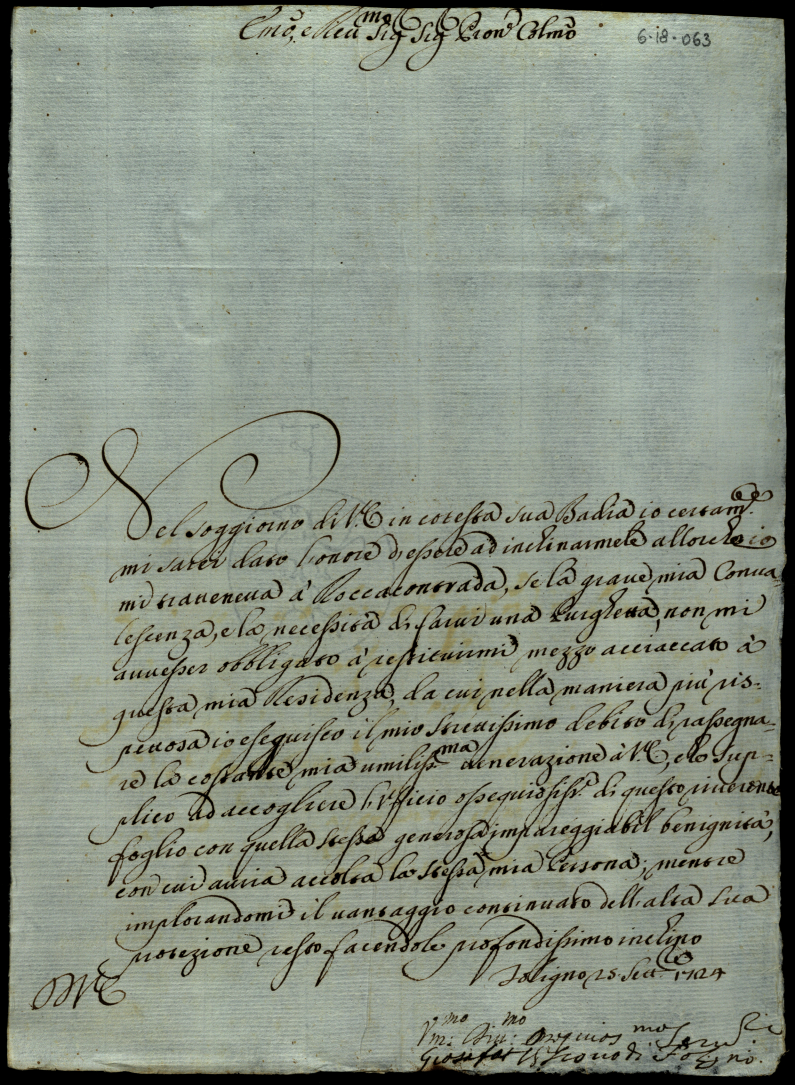 Emo, e Reumo Sig Sig Pron Colmo
6-18-063
Nel soggiorno di V.E in cotesta sua Badia io certamte
mi sarei dato l'onore d'essere ad inchinarmele allorchè io
mi tratteneva à Roccacontrada, se la grave mia Conva
lescenza, e la necessità di farvi una Purghetta, non mi
avvesser obbligato à restituirmi mezzo acciaccato à
questa mia Residenza, da cui nella maniera più ris-
pettosa io eseguisco il mio strettissimo debito di rassegna-
re la costante mia umilissma venerazione à V.E, e lo sup-
plico ad accogliere l'Ufficio ossequiosissº di questo riverente
foglio con quella stessa generosa impareggiabil benignità,
con cui avria accolta la stessa mia Persona; mentre
implorandomi il vantaggio continuato dell'alta sua
protezione resto facendole profondissimo inchino
Foligno 25 Sett.e 1724
DVE
Vmo: Divmo Osequiosmo Serv
Giosafat Vescovo di Foligno.